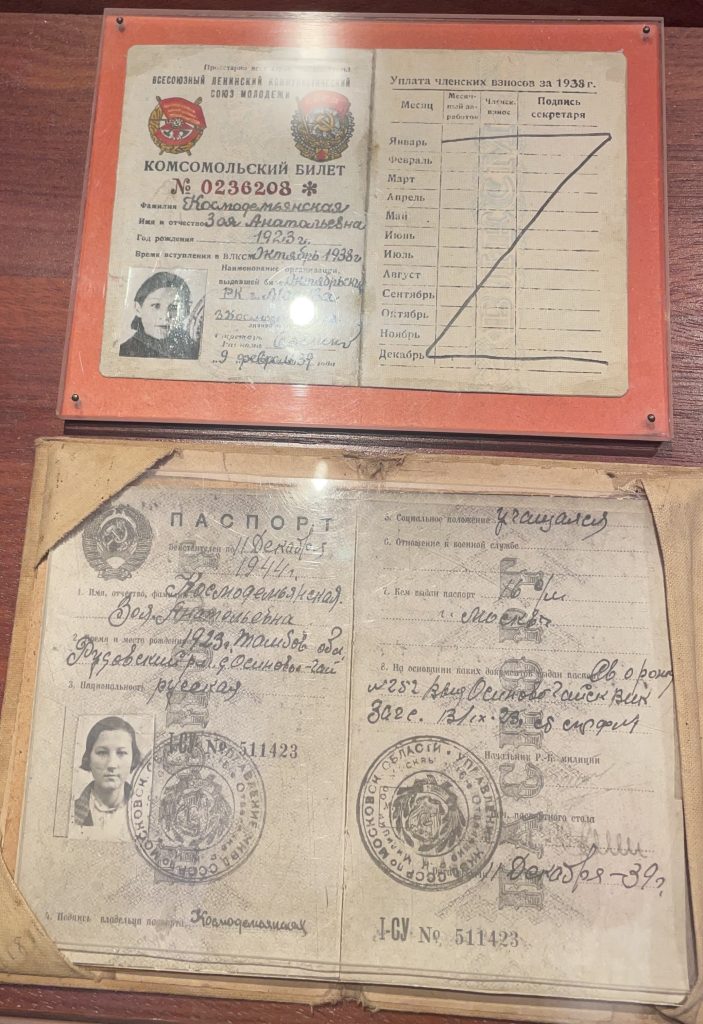 Пролетарии всех
ВСЕСОЮЗНЫЙ ЛЕНИНСКИЙ КОММУНИСТИЧЕСКИЙ
СОЮЗ МОЛОДЕЖИ
КОМСОМОЛЬСКИЙ БИЛЕТ
№ 0236208 *
Фамилия Космодемьянская
Имя и отчество Зоя Анатольевна
Год рождения 1923 г.
Время вступления в ВЛКСМ Октябрь 1938 г
Наименование организации,
выдавшей билет Октябрьский
РК г. Москва
З Космодем
9 февраль 39 года
Уплата членских взносов за 1938 г.
Месяц
Месячный заработок
Членск. взнос
Подпись секретаря
Январь
Февраль
Март
Апрель
Май
Июнь
Июль
Август
Сентябрь
Октябрь
Ноябрь
Декабрь
ПАСПОРТ
Действителен по 11 Декабря
1944 г.
1. Имя, отчество, фамилия Космодемьянская
Зоя Анатольевна
2. Время и место рождения 1923 г. Тамбов. обл
д. Осиновы-Гай
3. Национальность русская
I-СУ № 511423
4. Подпись владельца паспорта Космодемьянская
5. Социальное положение учащаяся
6. Отношение к военной службе
7. Кем выдан паспорт 16 о/м
г. Москвы
8. На основании каких документов выдан паспорт Св о рожд
№ 252 выд Осиново Гайск ВИК
Начальник Р.-К. милиции
паспортного стола
11 Декабря-39 г
I-СУ № 511423
ПО МОСКОВСК ОБЛАСТИ • УПРАВЛЕНИЕ НКВД СССР